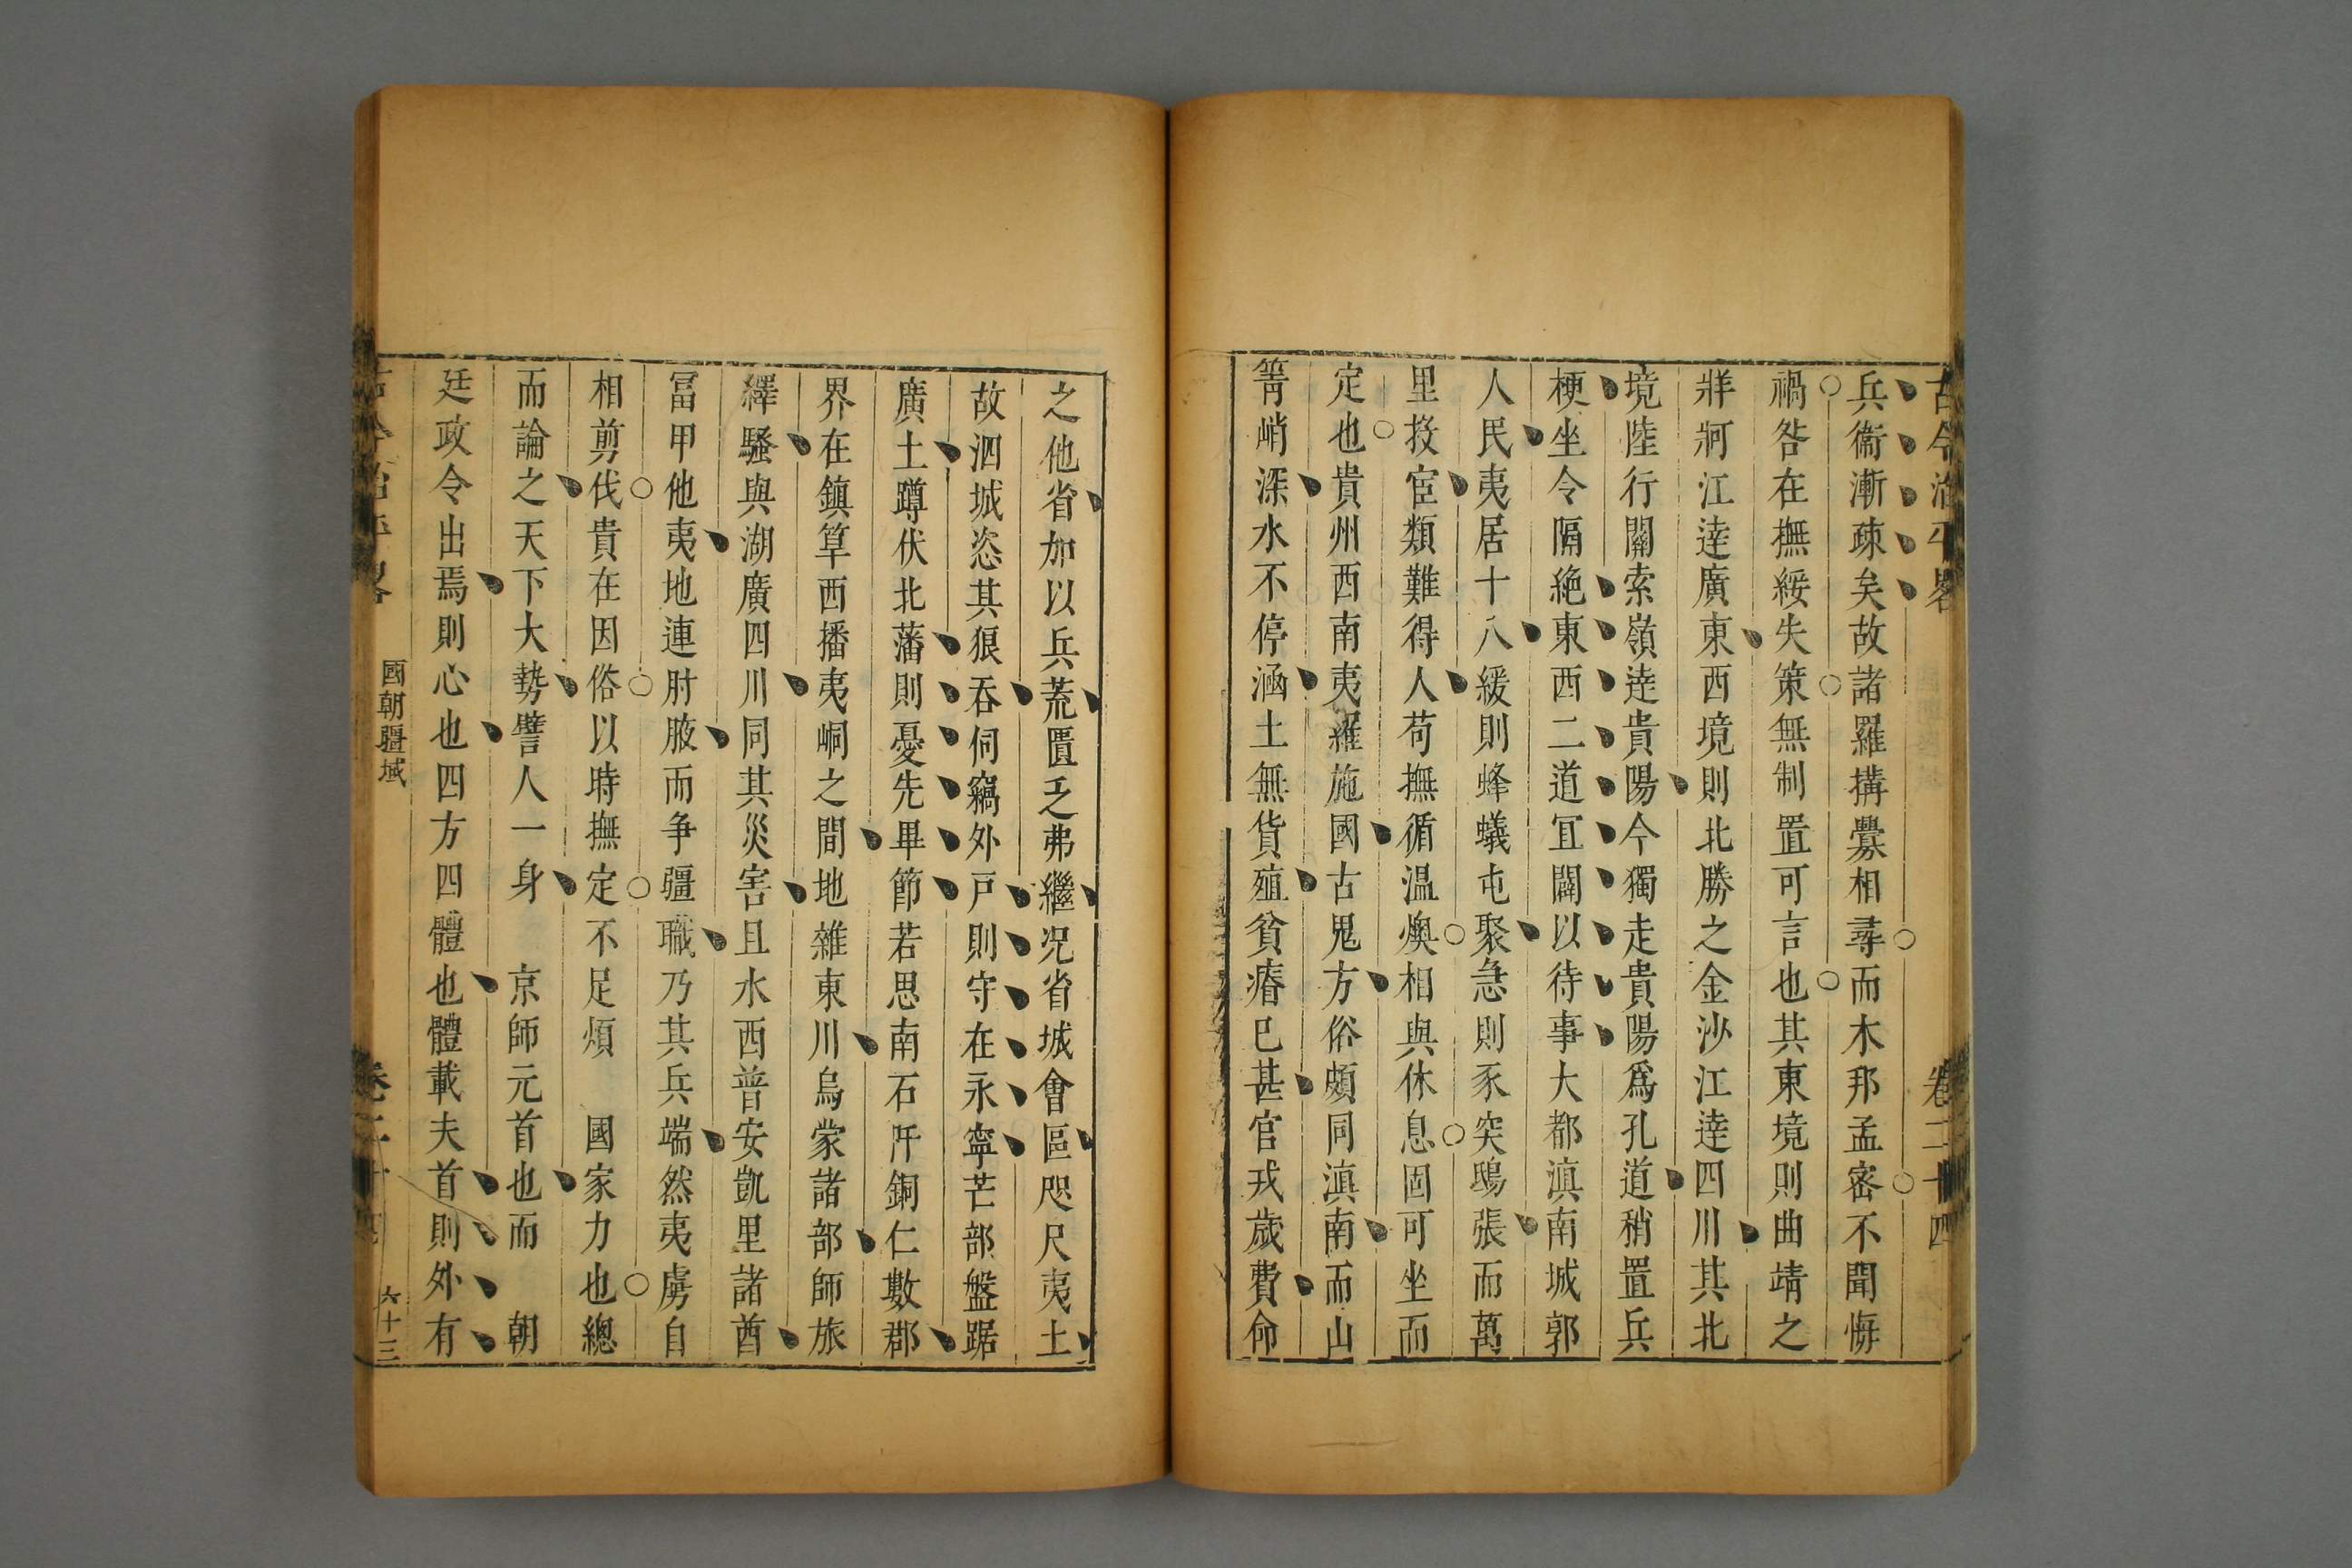 古今治平畧 卷二十四
兵衞漸疎矣故諸羅搆釁相尋而木邦孟密不聞悔
禍咎在撫綏失策無制置可言也其東境則曲靖之
牂牁江逹廣東西境則北勝之金沙江逹四川其北
境陸行關索嶺逹貴陽今獨走貴陽爲孔道稍置兵
梗坐令隔絶東西二道冝闢以待事大都滇南城郭
人民夷居十八緩則蜂蟻屯聚急則豕突鴟張而萬
里投宦類難得人苟撫循温燠相與休息固可坐而
定也貴州西南夷羅施國古鬼方俗頗同滇南而山
箐峭深水不停涵土無貨殖貧瘠已甚官戎歲費命
之他省加以兵荒匱乏弗繼況省城會區咫尺夷土
故泗城恣其狼吞伺竊外戸則守在永寧芒部盤踞
廣土蹲伏北藩則憂先畢節若思南石阡銅仁數郡
界在鎮筸西播夷峒之間地雜東川烏蒙諸部師旅
繹騷與湖廣四川同其災害且水西普安凱里諸酋
冨甲他夷地連肘腋而争疆職乃其兵端然夷虜自
相剪伐貴在因俗以時撫定不足煩 國家力也總
而論之天下大勢譬人一身 京師元首也而 朝
廷政令出焉則心也四方四體也體載夫首則外有
國朝疆域 六十三